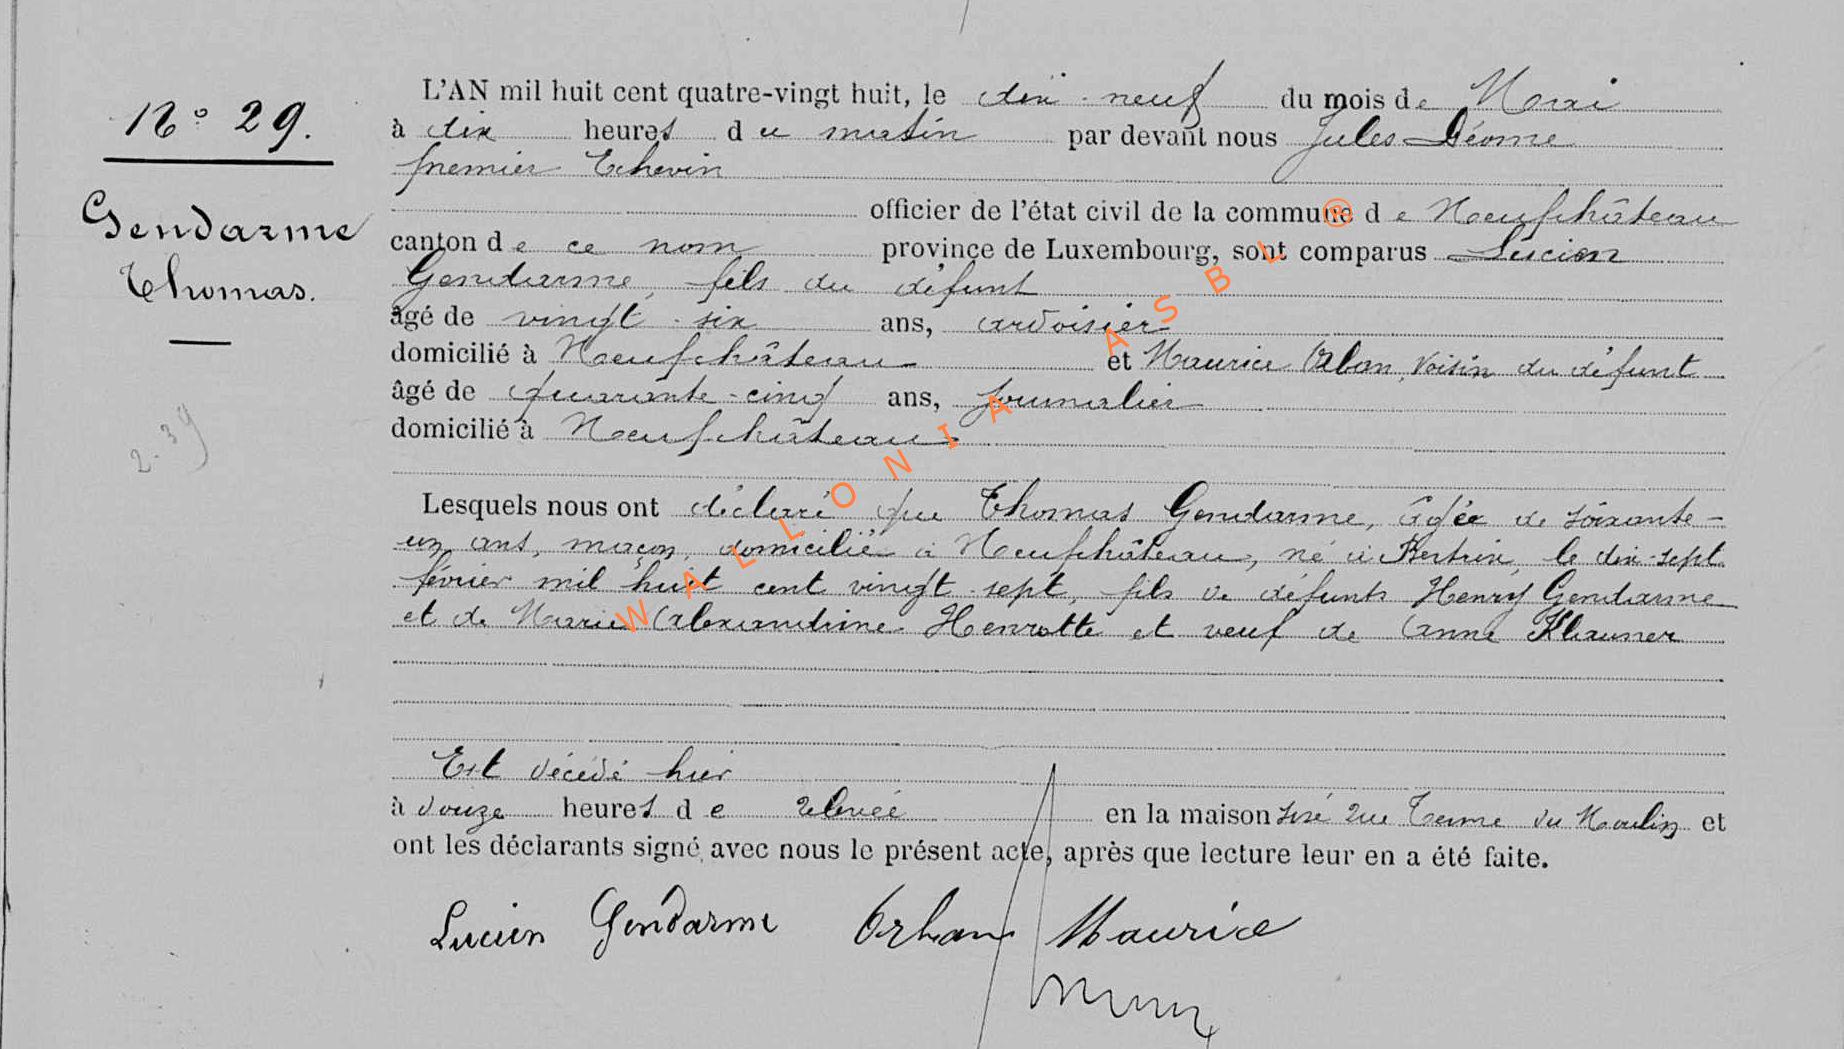 N° 29.
Gendarme
Thomas.
2-39
L'AN mil huit cent quatre-vingt huit, le dix-neuf du mois de Mai
à dix heures du matin par devant nous Jules Déome
premier Echevin
officier de l'état civil de la commune de Neufchâteau
canton de ce nom province de Luxembourg, sont comparus Lucien
Gendarme, fils du défunt
âgé de vingt-six ans, ardoisier
domicilié à Neufchâteau et Maurice Orban, voisin du défunt
âgé de quarante-cinq ans, journalier
domicilié à Neufchâteau
Lesquels nous ont déclaré que Thomas Gendarme, âgée de soixante-
un ans, maçon, domicilié à Neufchâteau, né à Bertrix, le dix-sept
février mil huit cent vingt-sept, fils de défunts Henry Gendarme
et de Marie Alexandrine Henrotte et veuf de Anne Klauner
Est décédé hier
à douze heures de relevée en la maison sise rue Terme du Moulin et
ont les déclarants signé avec nous le présent acte, après que lecture leur en a été faite.
Lucien Gendarme Orban Maurice
WALLONIA ASBL ®